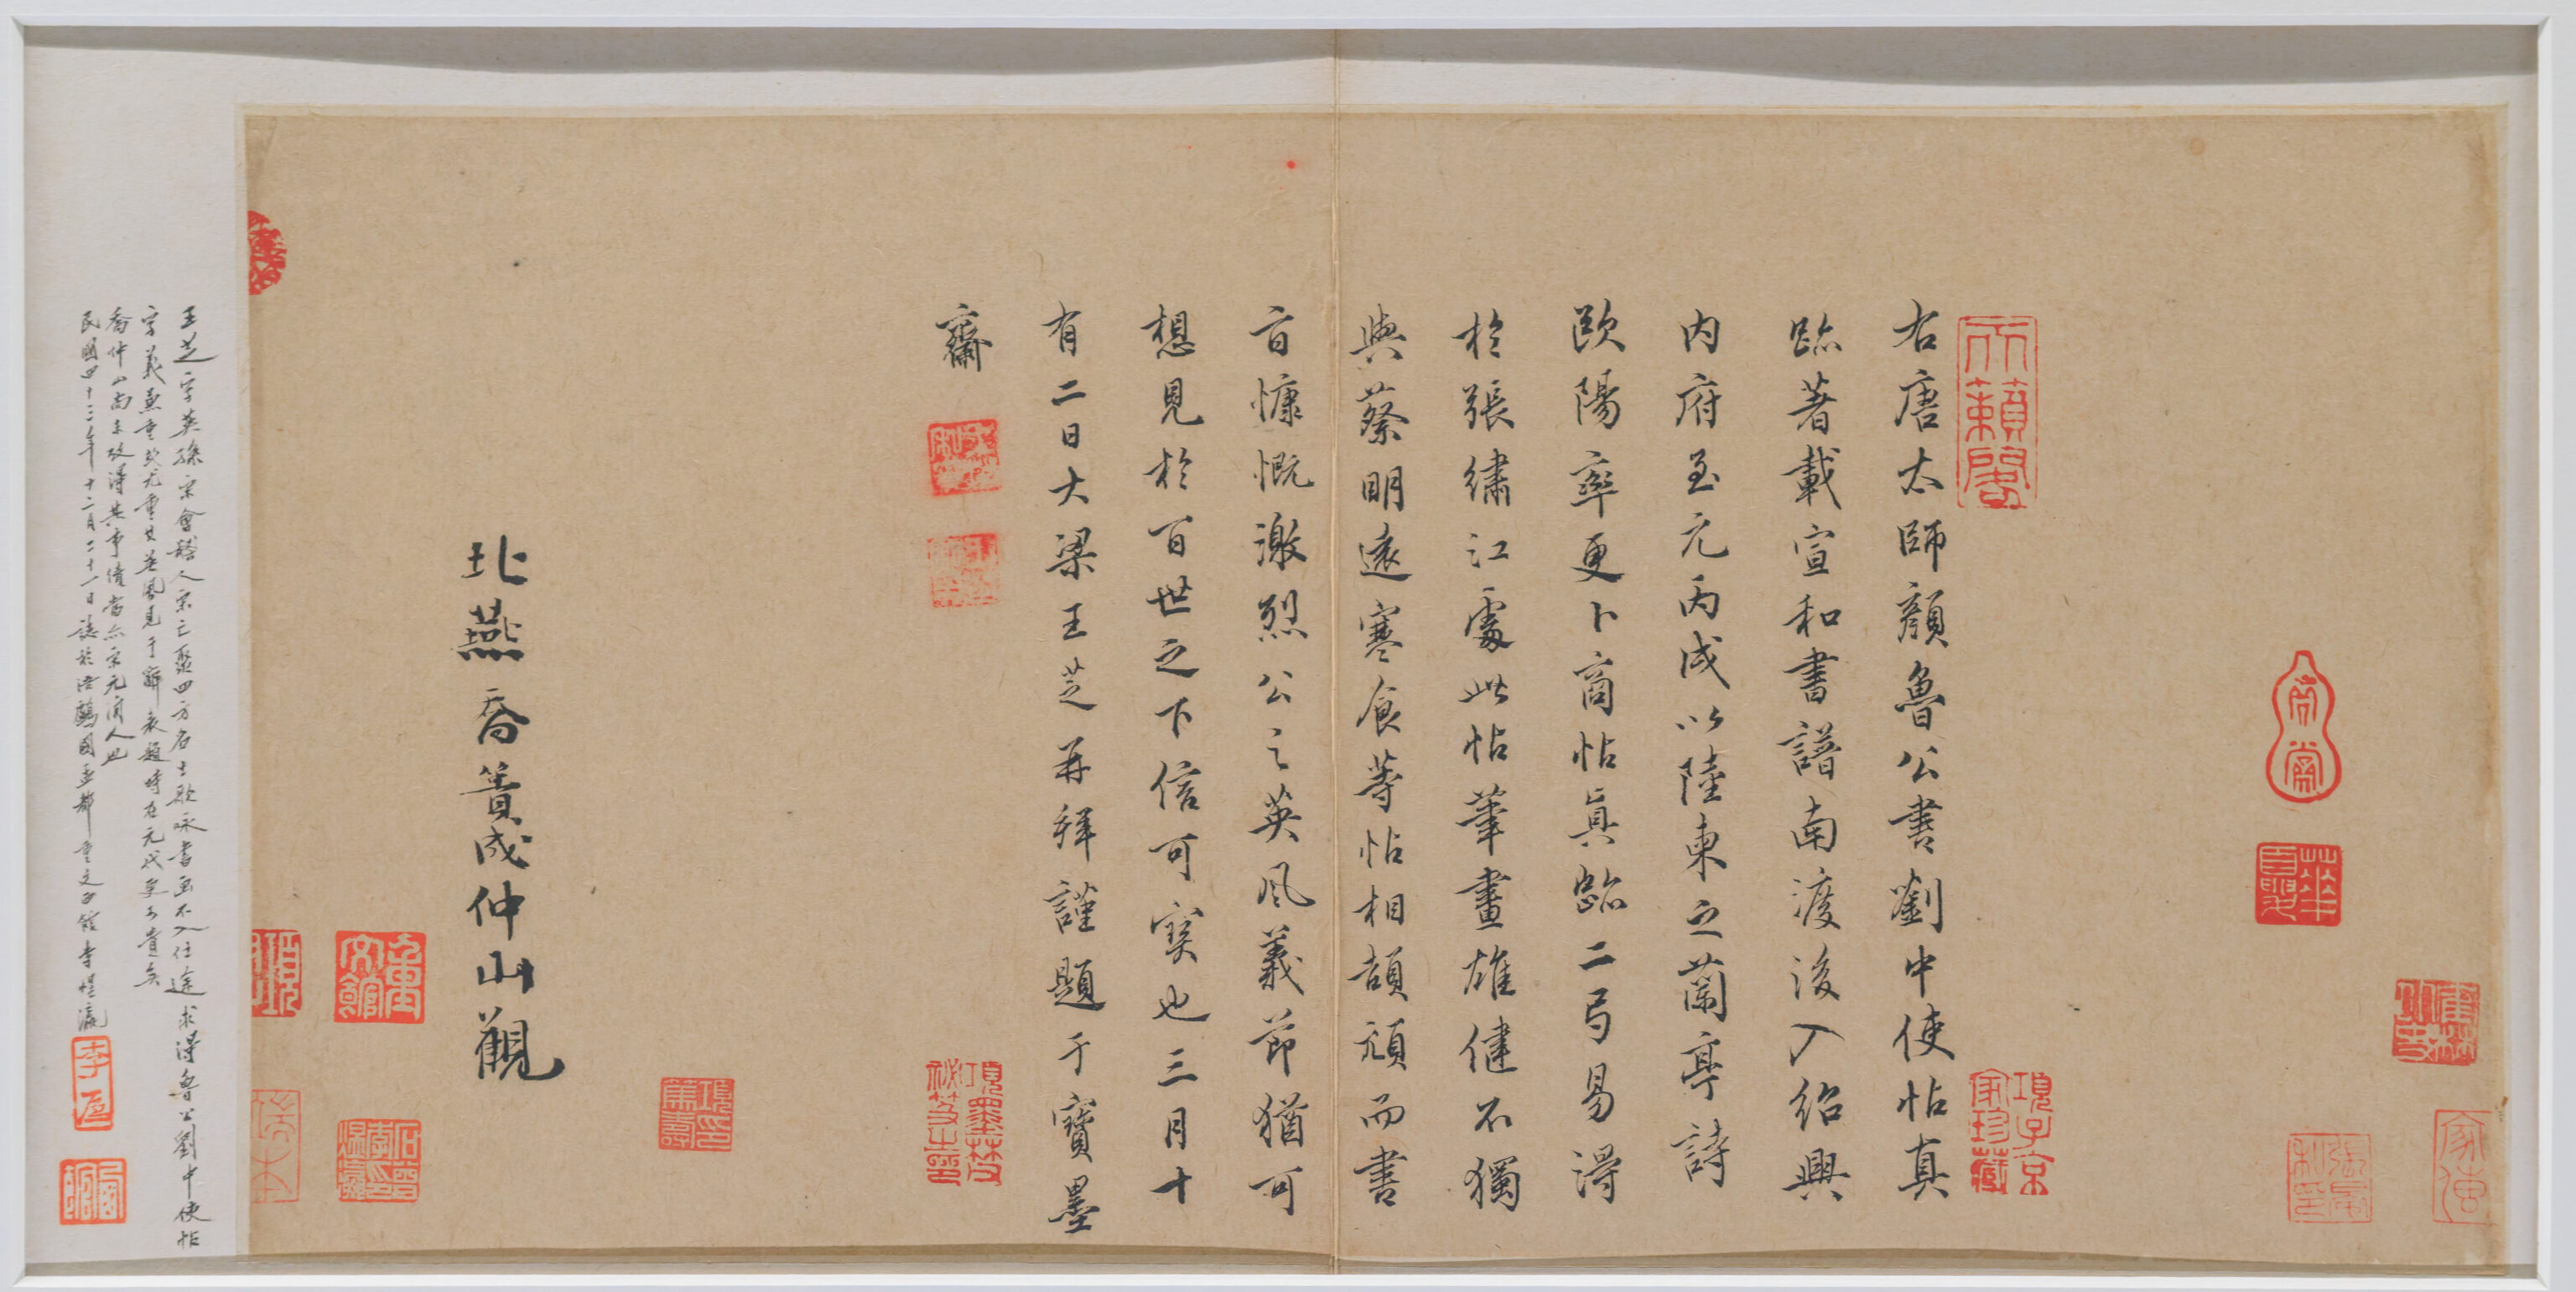 右唐太師顏魯公書劉中使帖真
跡著載宣和書譜南渡後入紹興
內府至元丙戌以陸柬之蘭亭詩
歐陽率更卜商帖真跡二弓易得
於張繡江處此帖筆畫雄健不獨
與蔡明遠寒食等帖相頡頏而書
旨慷慨激烈公之英風義節猶可
想見於百世之下信可寶也三月十
有二日大梁王芝再拜謹題于寶墨
齋
北燕喬簣成仲山觀
王芝字英孫宋會稽人宋亡聚四方名士歌咏書畫不入仕途求得魯公劉中使帖
字義兼重於元重其英風見于辭表題時在元代更可貴矣
喬仲山尚未考得其事蹟當亦宋元間人也
民國四十三年十二月二十一日
天籟閣
項子京
家珍藏
項墨林
父秘笈之印